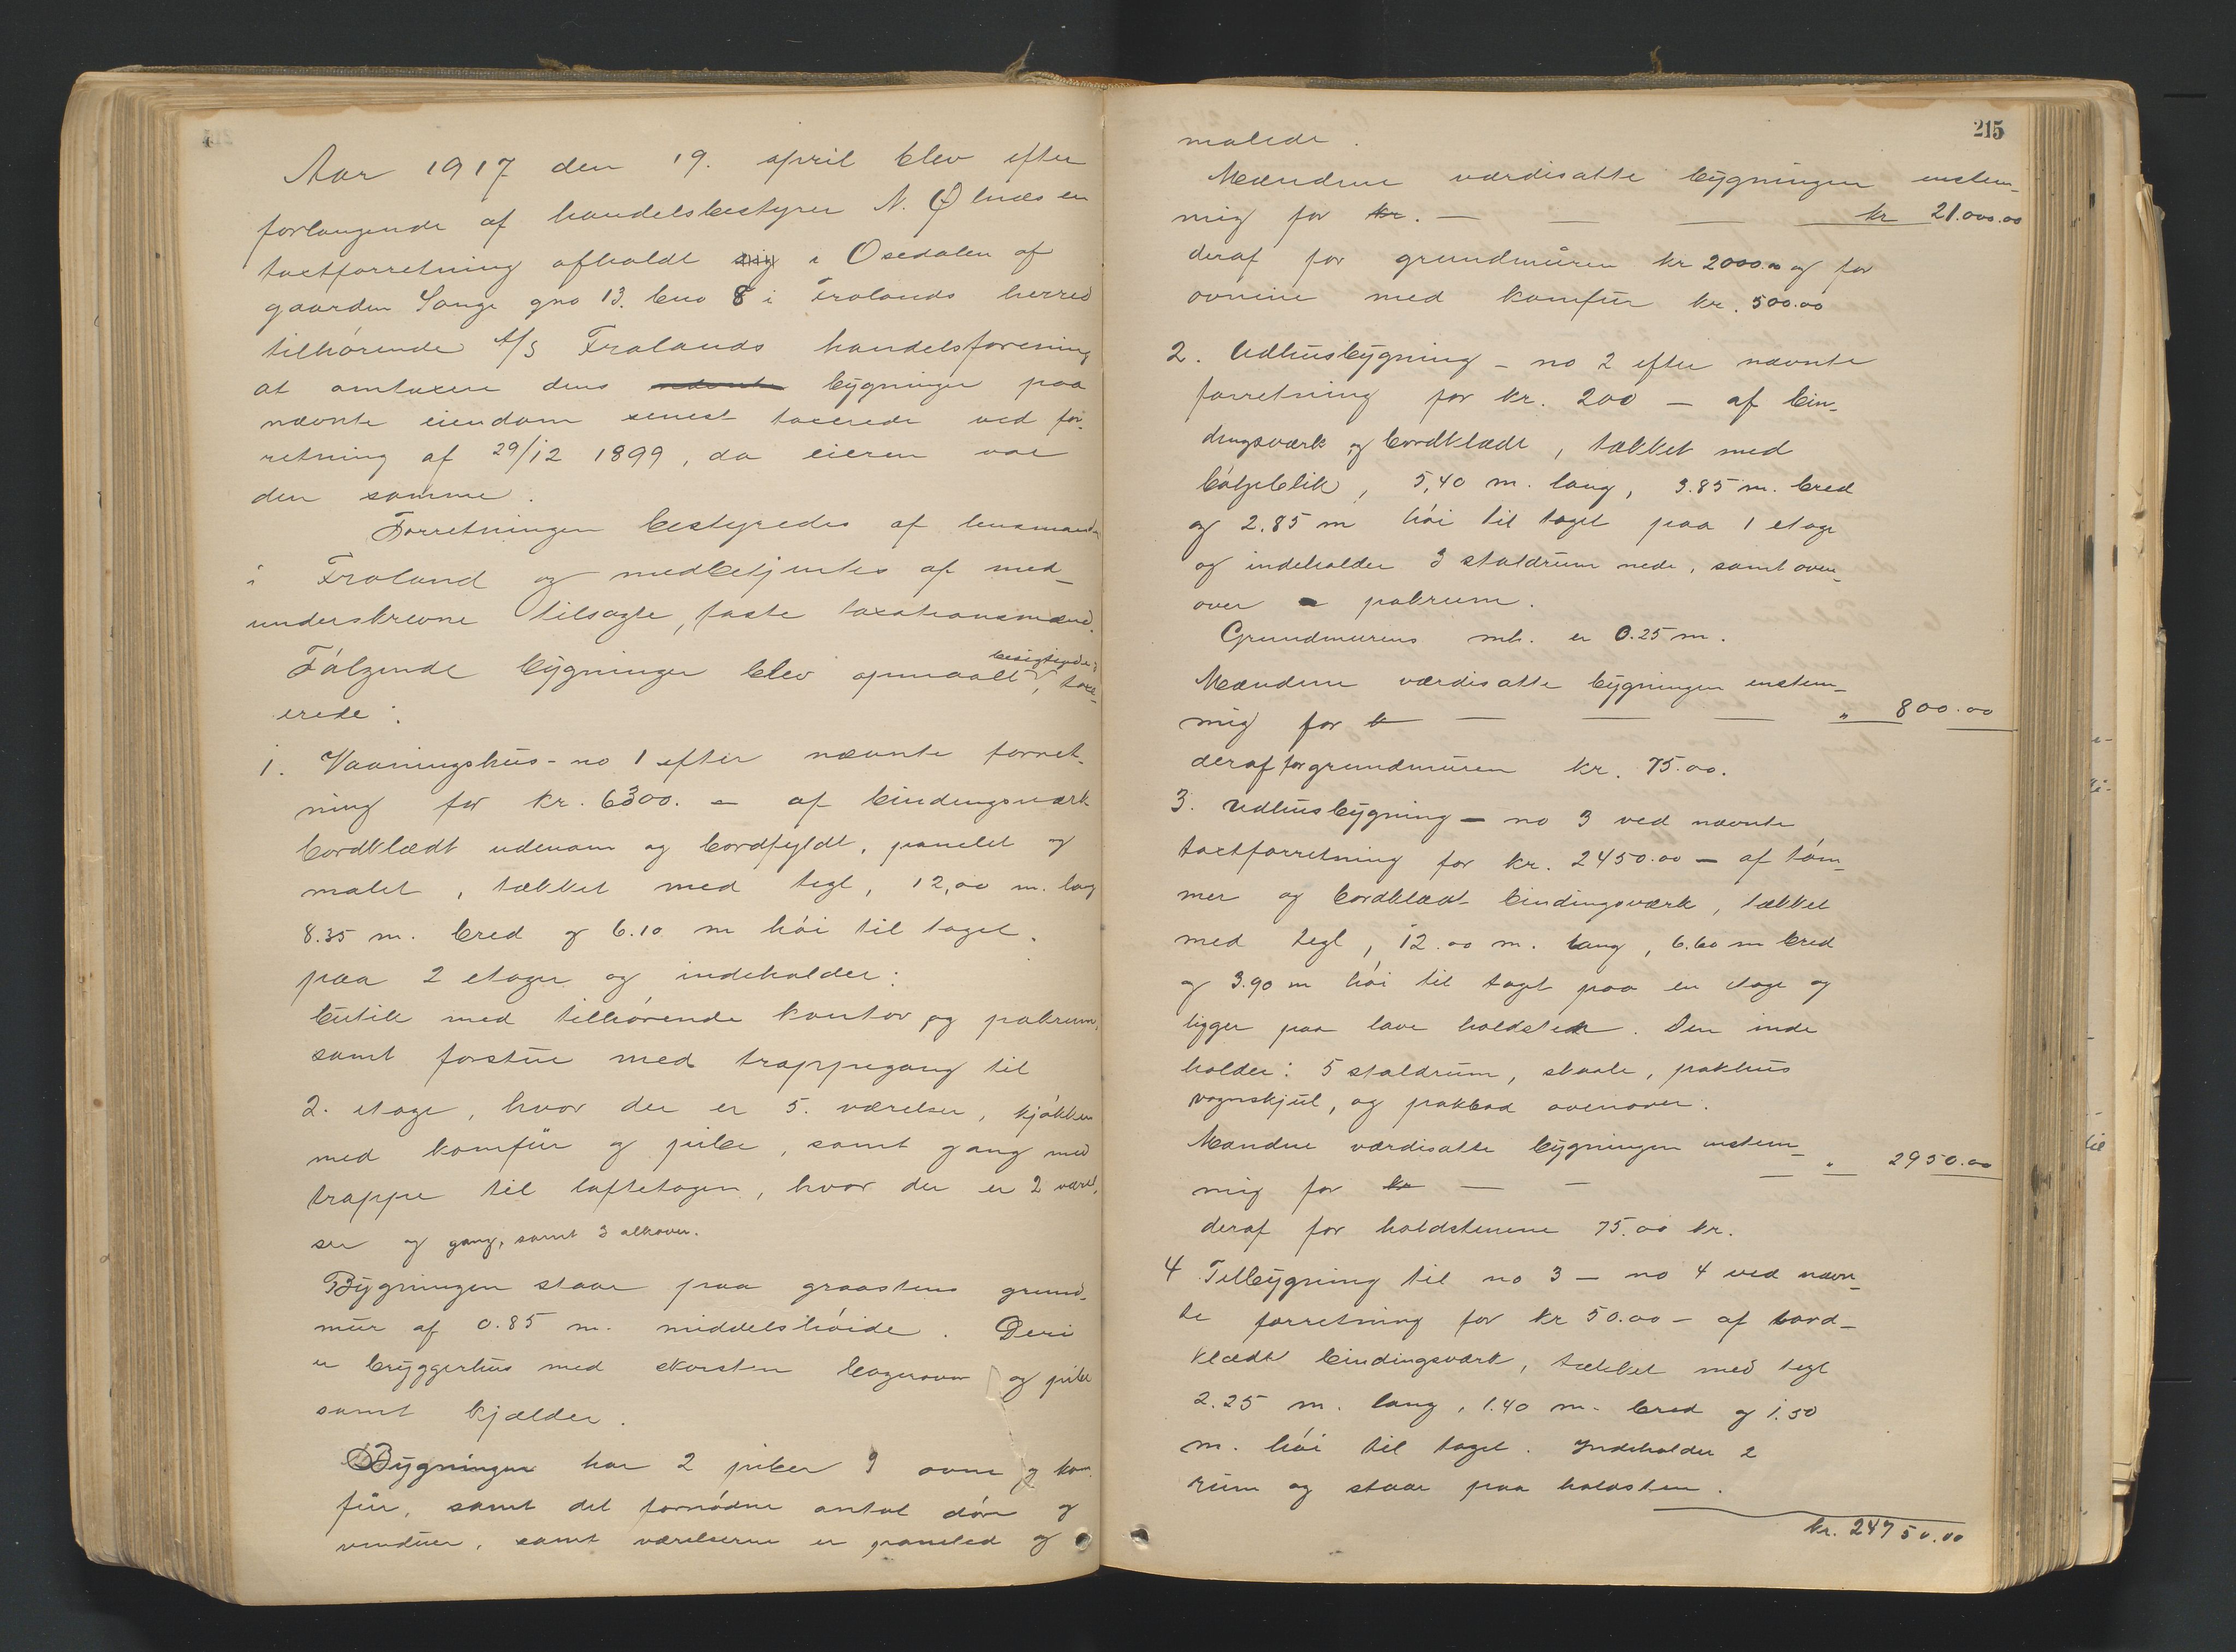 Aar 1917 den 19. april blev efter
forlangende af handelsbestyrer N. Ølnæs en
taxtforretning afholdt i Osedalen af
gaarden Songe gno 13. bno 8 i Frolands herred
tilhörende A/S Frolands handelsforening
at omtaxere dens bygninger paa
nævnte eiendom senest taxerede ved for-
retning af 29/12 1899, da eieren var
den samme.
Forretningen bestyredes af lensmanden
i Froland og medbetjentes af med-
underskrevne tilsagte, faste taxationsmænd.
Fölgende bygninger blev opmaalt, besigtigede, tax-
erede:
1. Vaaningshus - no 1 efter nævnte forret-
ning for kr. 6300. - af bindingsværk
bordklædt udenom og bordfyldt, panelet og
malet, tækket med tegl, 12,00 m. lang
8.35 m. bred og 6.10 m höi til taget.
paa 2 etager og indeholder:
butik med tilhörende kontor og pakrum,
samt forstue med trappegang til
2. etage, hvor der er 5. værelser, kjökken
med komfür og pibe, samt gang med
trappe til loftetagen, hvor der er 2 værel-
ser og gang, samt 3 alkover.
Bygningen staar paa graastens grund-
mür af 0.85 m. middelshöide. Deri
er bryggerhus med skorsten bagerovn og pibe
samt kjælder.
Bygningen har 2 piber 9 ovne og kom-
für, samt det fornödne antal döre og
vinduer, samt værelserne er paneled og
215
malede.
Mændene værdisatte bygningen enstem-
mig for kr. — — — kr 21.000.00
deraf for grundmüren kr 2000.00 og for
ovnene med komfür kr. 500.00
2. Udhusbygning - no 2 efter nævnte
forretning for kr. 200 — af bin-
dingsværk og bordklædt, tækket med
bölgeblik, 5,40 m. lang, 3.85 m. bred
og 2.85 m höi til taget paa 1 etage
og indeholder 3 staldrum nede, samt oven-
over pakrum.
Grundmurens mh. er 0.25 m.
Mændene værdisatte bygningen enstem-
mig for — — — " 800.00
deraf for grundmüren kr. 75.00.
3. Udhusbygning — no 3 ved nævnte
taxtforretning for kr. 2450.00 — af töm-
mer og bordklædt bindingsværk, tækket
med tegl, 12.00 m. lang, 6.60 m bred
og 3.90 m höi til taget paa en etage og
ligger paa lave holdsten. Den inde
holder: 5 staldrum, skaale, pakhus
vognskjul, og pakbod ovenover.
Mændene værdisatte bygningen enstem-
mig for kr — — — " 2950.00
deraf for holdstenene 75.00 kr.
4 Tilbygning til no 3 — no 4 ved nævn-
te forretning for kr 50.00 — af bord-
klædt bindingsværk, tækket med tegl
2.25 m. lang, 1.40 m. bred og 1.50
m. höi til taget. Indeholder 2
rum og staar paa holdsten.
kr. 24750.00